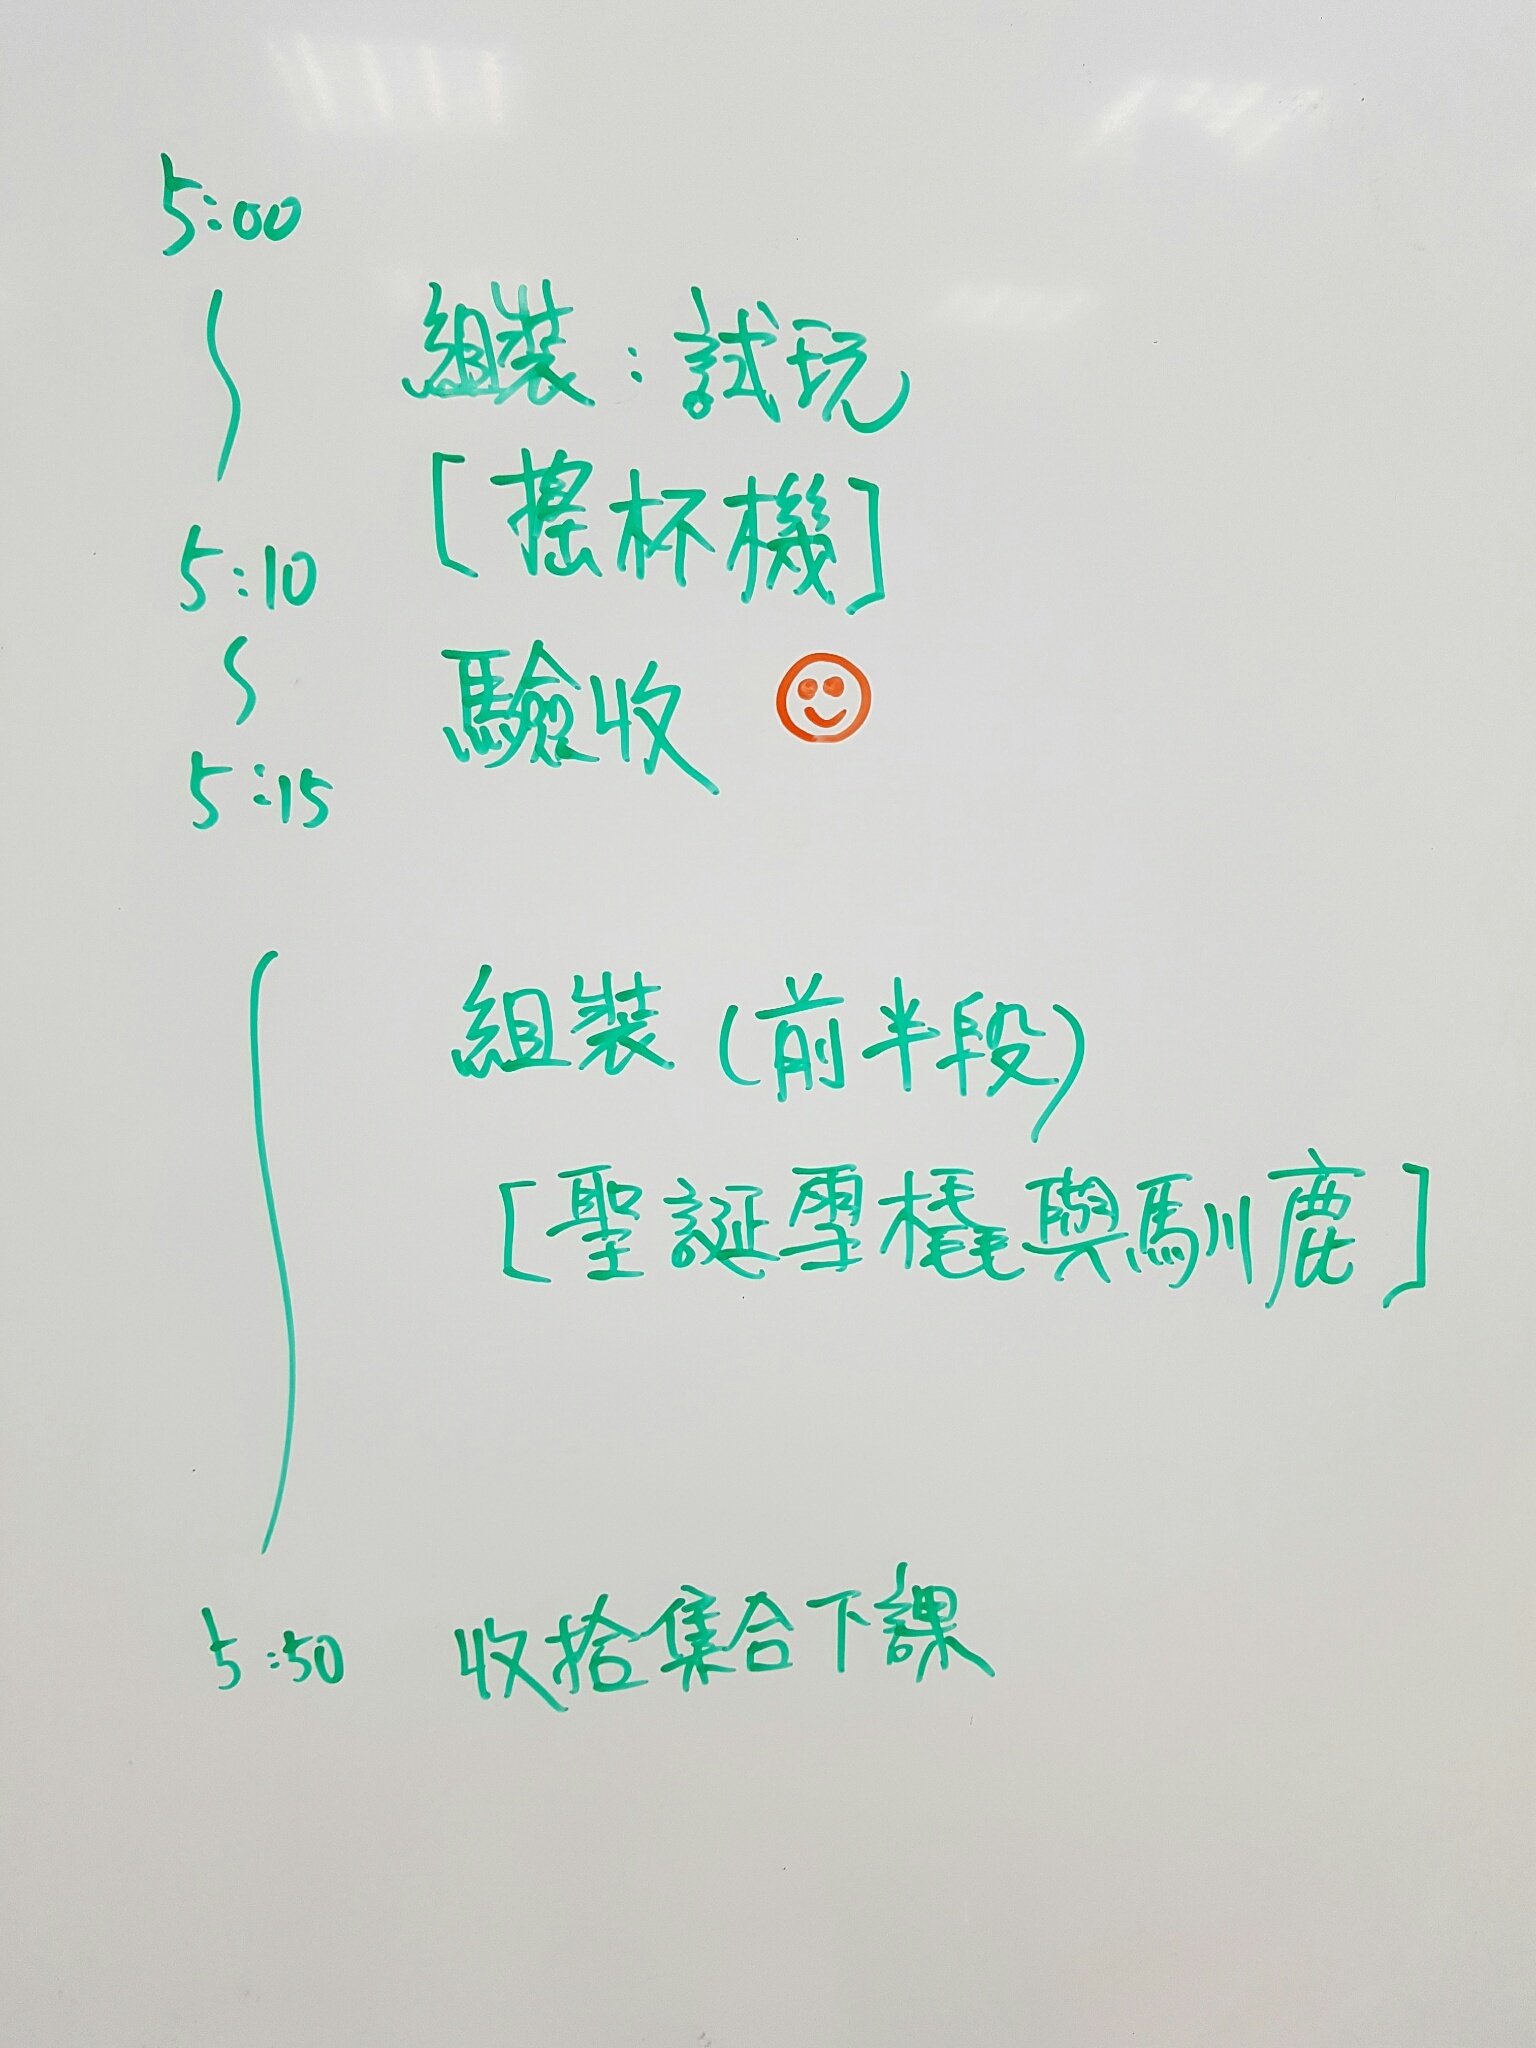 5:00
組裝:試玩
[搖杯機]
5:10
驗收
5:15
組裝(前半段)
[聖誕雪橇與馴鹿]
5:50 收拾集合下課